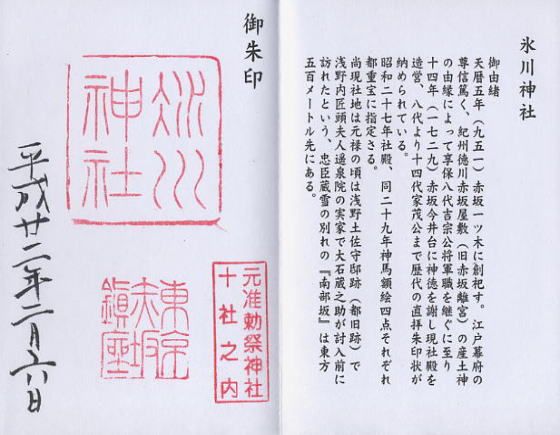 氷川神社
御由緒
天暦五年(九五一)赤坂一ツ木に創祀す。江戸幕府の
尊信篤く、紀州徳川赤坂屋敷(旧赤坂離宮)の産土神
の由縁によって享保八代吉宗公将軍職を継ぐに至り
十四年(一七二九)赤坂今井台に神徳を謝し現社殿を
造営、八代より十四代家茂公まで歴代の直拝朱印状が
納められている。
昭和二十七年社殿、同二十九年神馬額絵四点それぞれ
都重宝に指定さる。
尚現社地は元禄の頃は浅野土佐守邸跡(都旧跡)で
浅野内匠頭夫人遥泉院の実家で大石蔵之助が討入前に
訪れたという、忠臣蔵雪の別れの『南部坂』は東方
五百メートル先にある。
御朱印
氷川
神社
元准勅祭神社
十社之内
東京
赤坂
鎮座
平成廿二年二月六日